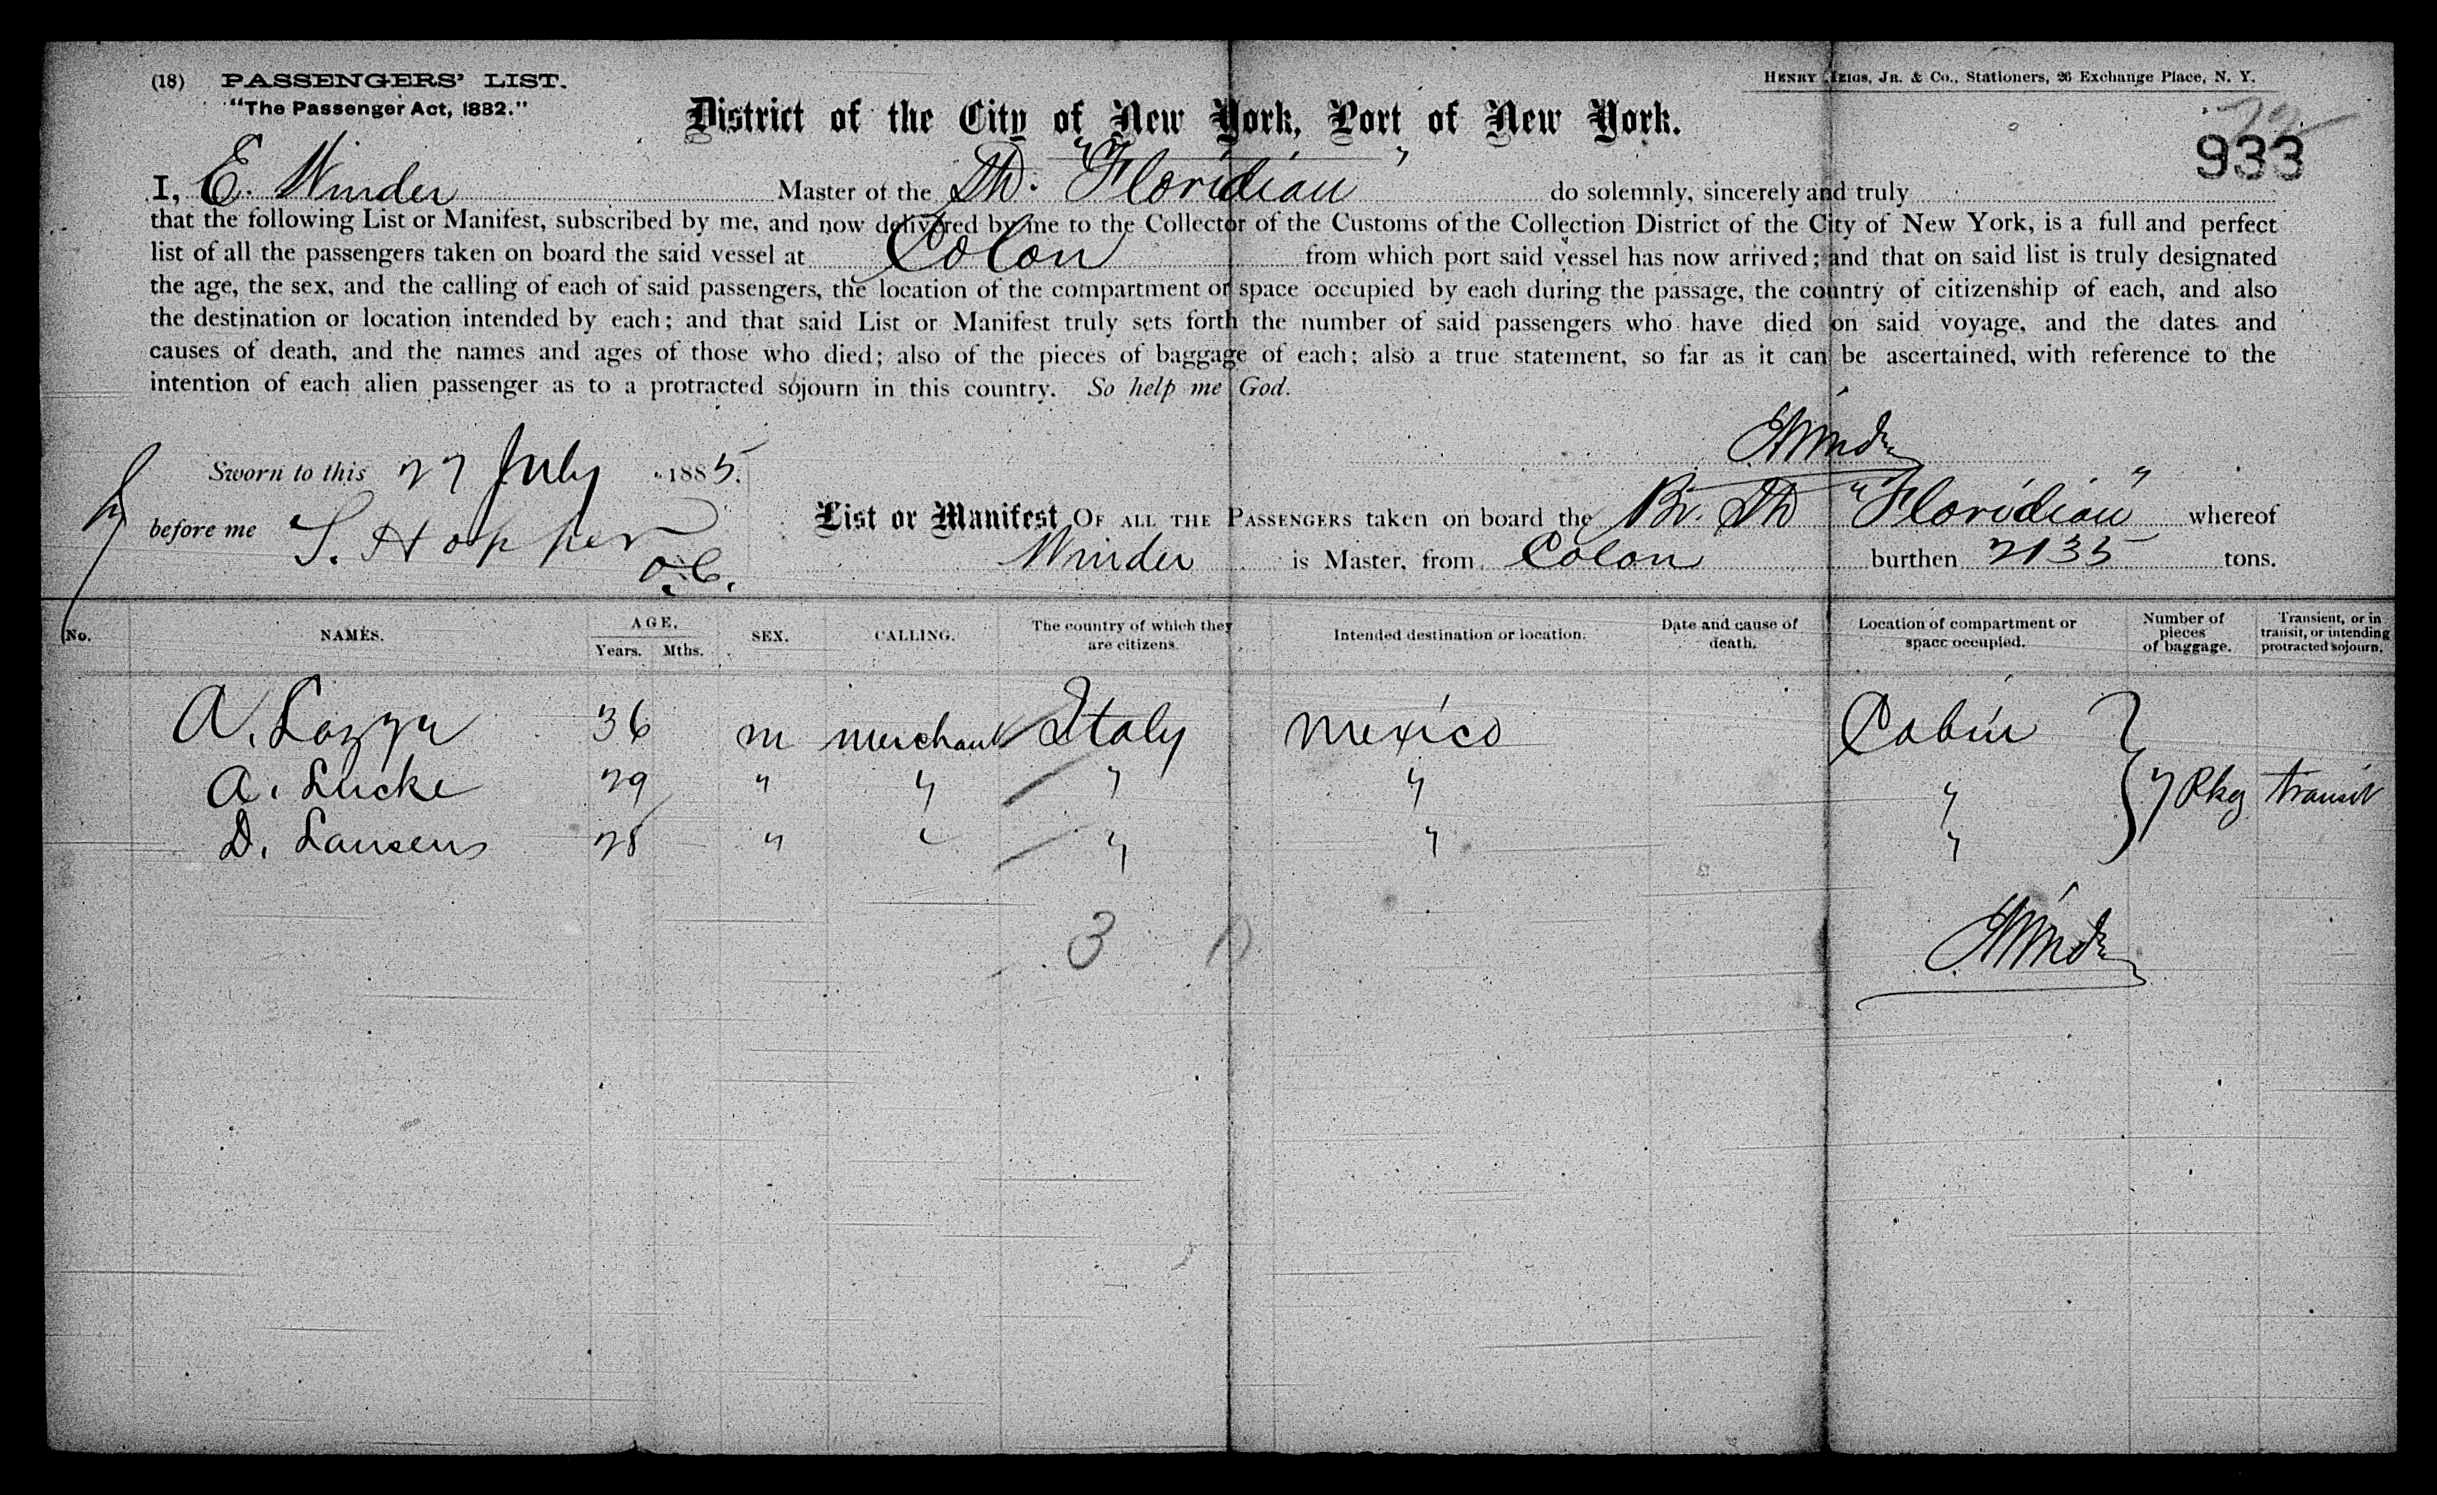 (18) PASSENGERS' LIST.
"The Passenger Act, 1882."
HENRY Jr. & Co., Stationers, 26 Exchange Place, N. Y.
District of the City of New York, Port of New York.
933
I, E. Winder Master of the "Floridian" do solemnly, sincerely and truly
that the following List or Manifest, subscribed by me, and now delivered by me to the Collector of the Customs of the Collection District of the City of New York, is a full and perfect
list of all the passengers taken on board the said vessel at Colon from which port said vessel has now arrived; and that on said list is truly designated
the age, the sex, and the calling of each of said passengers, the location of the compartment or space occupied by each during the passage, the country of citizenship of each, and also
the destination or location intended by each; and that said List or Manifest truly sets forth the number of said passengers who have died on said voyage, and the dates and
causes of death, and the names and ages of those who died; also of the pieces of baggage of each; also a true statement, so far as it can be ascertained, with reference to the
intention of each alien passenger as to a protracted sojourn in this country. So help me God.
EWinder
Sworn to this 27 July 1885.
before me S. Hopper
D.C.
List or Manifest OF ALL THE PASSENGERS taken on board the Br. "Floridian" whereof
Winder is Master, from Colon burthen 2135 tons.
No. NAMES. AGE. Years. Mths. SEX. CALLING. The country of which they are citizens. Intended destination or location. Date and cause of death. Location of compartment or space occupied. Number of pieces of baggage. Transient, or in transit, or intending protracted sojourn.
A. 36 m merchant Italy Mexico Cabin
A. Lucke 29 " " " " " 7 Pkg transit
D. Lansens 28 " " " " "
3
EWinder